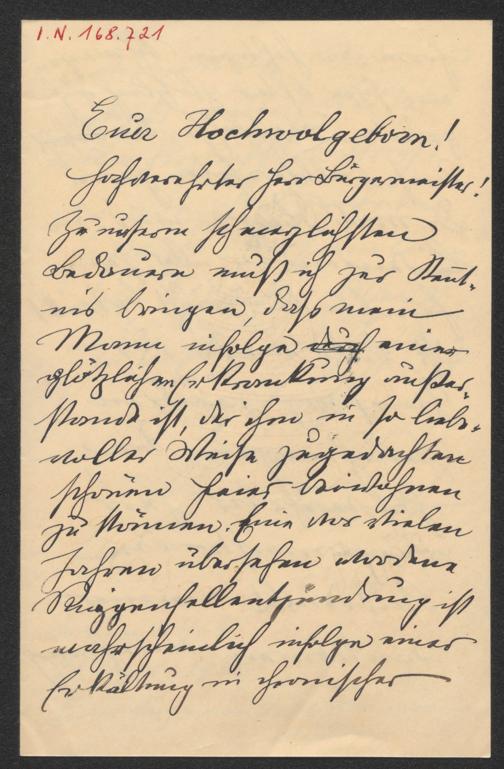 I.N. 168.721
Euer Hochwolgeborn!
Hochverehrter Herr Bürgermeister!
Zu unserm schmerzlichsten
Bedauern muß ich zur Kent-
nis bringen, daß mein
Mann infolge durch einer
plötzlichen Erkrankung außer-
stande ist, der ihm in so liebe-
voller Weise zugedachten
schönen Feier beiwohnen
zu können. Eine vor vielen
Jahren übersehen wordene
Rippenfellentzündung ist
wahrscheinlich infolge einer
Erkältung in chronischer